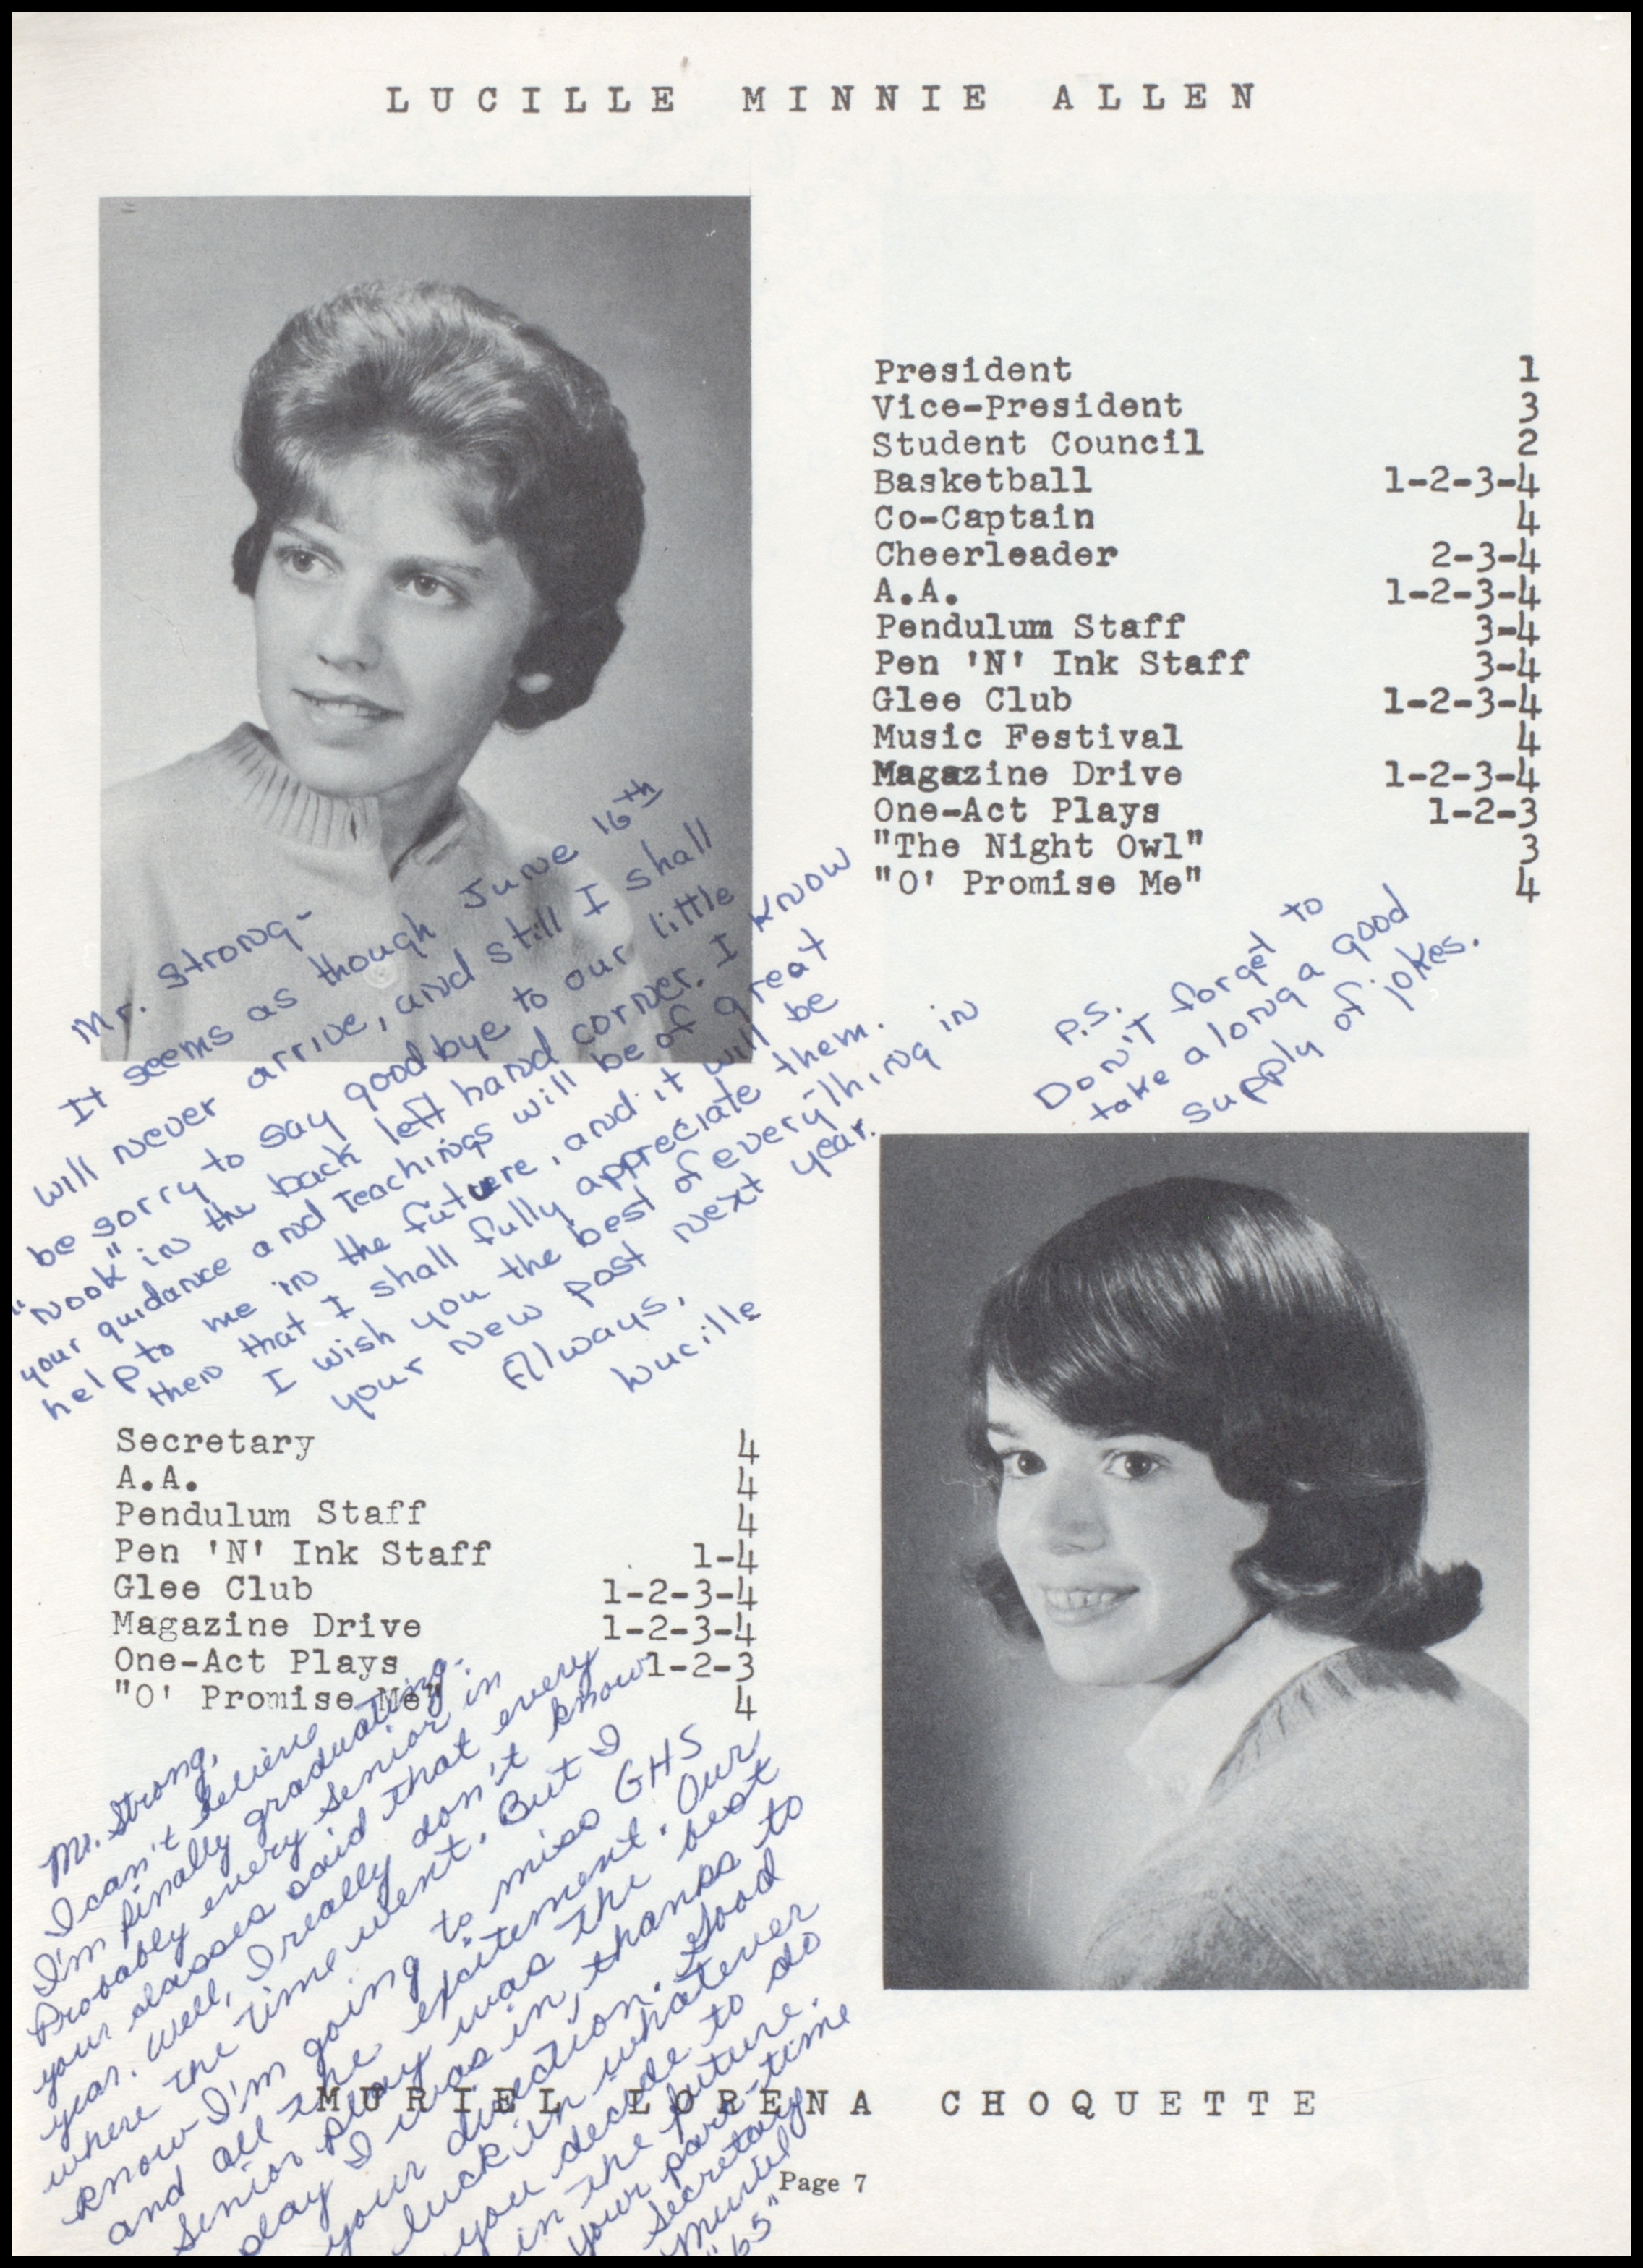 LUCILLE MINNIE ALLEN
President 1
Vice-President 3
Student Council 2
Basketball 1-2-3-4
Co-Captain 4
Cheerleader 2-3-4
A.A. 1-2-3-4
Pendulum Staff 3-4
Pen 'N' Ink Staff 3-4
Glee Club 1-2-3-4
Music Festival 4
Magazine Drive 1-2-3-4
One-Act Plays 1-2-3
"The Night Owl" 3
"O' Promise Me" 4
Mr. Strong-
It seems as though June 16th
will never arrive, and still I shall
be sorry to say goodbye to our little
"nook" in the back left hand corner. I know
your guidance and teachings will be of great
help to me in the future, and it will be
then that I shall fully appreciate them.
I wish you the best of everything in
your new post next year.
Always,
Lucille
P.S.
Don't forget to
take along a good
supply of jokes.
Secretary 4
A.A. 4
Pendulum Staff 4
Pen 'N' Ink Staff 1-4
Glee Club 1-2-3-4
Magazine Drive 1-2-3-4
One-Act Plays 1-2-3
"O' Promise Me" 4
Mr. Strong,
I can't believe
I'm finally graduating.
Probably every senior in
your classes said that every
year. Well, I really don't know
where the time went. But I
know I'm going to miss GHS
and all the excitement. Our
senior play was the best
play I was in, thanks to
your direction. Good
luck in whatever
you decide to do
in the future.
your part-time
secretary
Muriel
"65"
MURIEL LORENA CHOQUETTE
Page 7